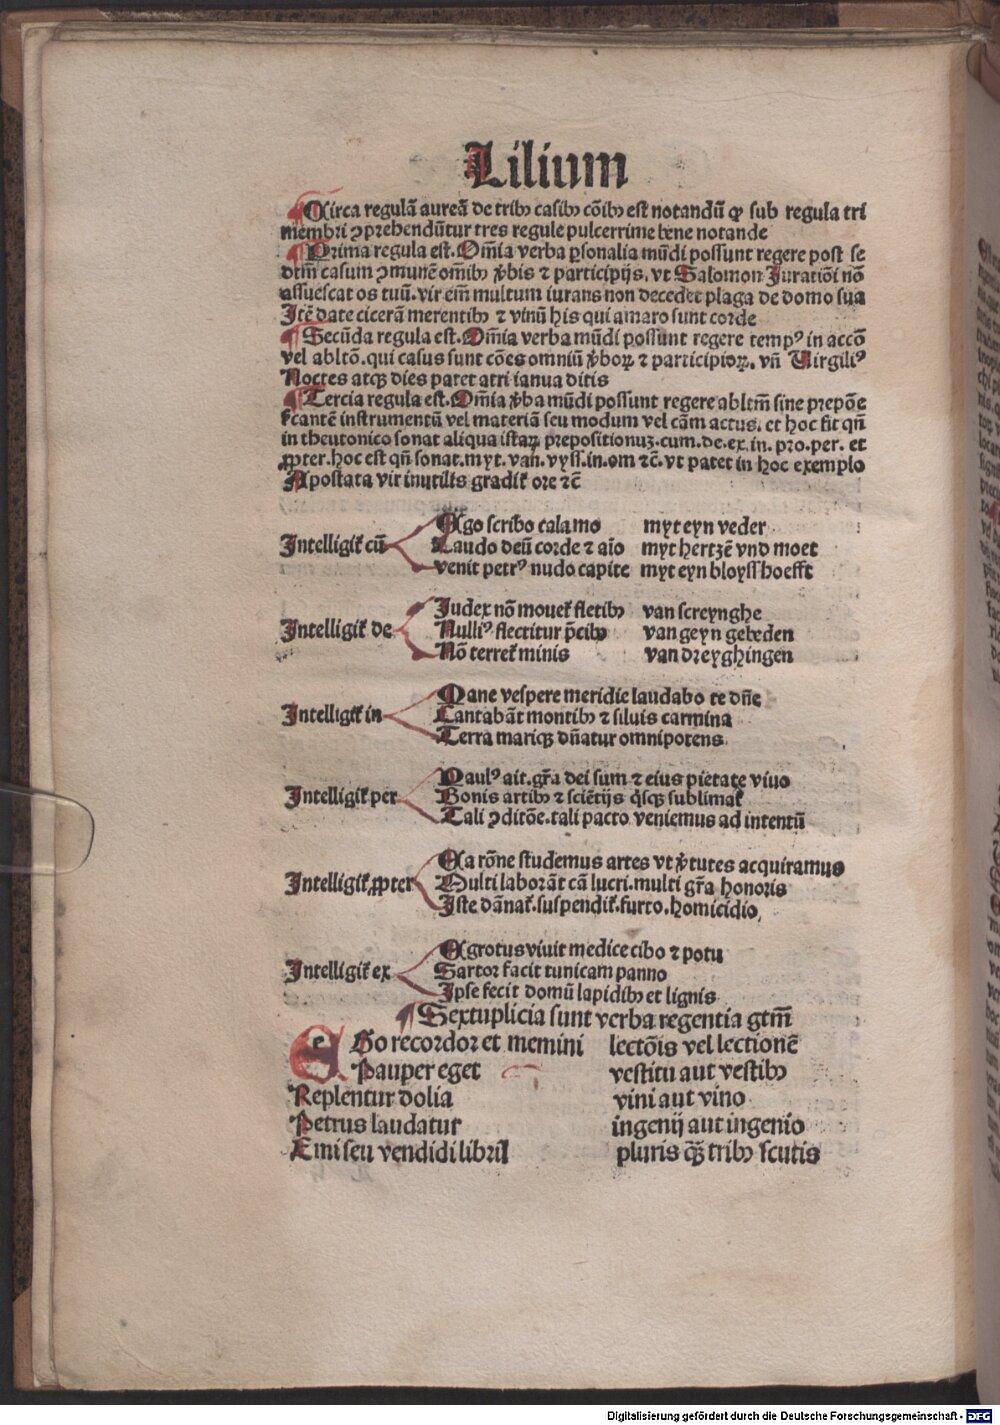 Lilium
¶ Circa regulã aureã de tribꝫ casibꝫ cõibꝫ est notandũ ꝙ sub regula tri
membri ꝯprehendũtur tres regule pulcerrime bene notande
¶ Prima regula est. Om̃ia verba ꝑsonalia mũdi possunt regere post se
dtm̃ casum ꝯmunẽ om̃ibꝫ ꝟbis ⁊ participijs. vt Salomon Iuratiõi nõ
assuescat os tuũ. vir em̃ multum iurans non decedet plaga de domo sua
Itẽ date ciceram̃ merentibꝫ ⁊ vinũ his qui amaro sunt corde
¶ Secũda regula est. Om̃ia verba mũdi possunt regere tempꝰ in accõ
vel abltõ. qui casus sunt cões omniũ ꝟboꝝ ⁊ participioꝝ. vñ Virgiliꝰ
Noctes atqꝫ dies patet atri ianua ditis
¶ Tercia regula est. Om̃ia ꝟba mũdi possunt regere abltm̃ sine prepõe
signcantẽ instrumentũ vel materiã seu modum vel cãm actus. et hoc fit qñ
in theutonico sonat aliqua istaꝝ prepositionuꝫ. cum. de. ex. in. pro. per. et
ꝓpter. hoc est qñ sonat. myt. van. vyss. in. om ⁊c̃. vt patet in hoc exemplo
Apostata vir inutilis gradit̃ ore ⁊c̃
Intelligit̃ cũ
Ego scribo calamo myt eyn veder
Laudo deũ corde ⁊ aĩo myt hertzẽ vnd moet
venit petrꝰ nudo capite myt eyn bloyss hoefft
Intelligit̃ de
Iudex nõ mouet̃ fletibꝫ van screynghe
Nulliꝰ flectitur p̃cibꝫ van geyn gebeden
Nõ terret̃ minis van dreyghingen
Intelligit̃ in
Mane vespere meridie laudabo te dñe
Cantabãt montibꝫ ⁊ siluis carmina
Terra mariqꝫ dñatur omnipotens
Intelligit̃ per
Paulꝰ ait. gr̃a dei sum ⁊ eius pietate viuo
Bonis artibꝫ ⁊ sciẽtijs q̃sqꝫ sublimat̃
Tali ꝯditõe. tali pacto veniemus ad intentũ
Intelligit̃ ꝓpter
Ea rõne studemus artes vt ꝟtutes acquiramus
Multi laborãt cã lucri. multi gr̃a honoris
Iste dãnat̃. suspendit̃. furto. homicidio
Intelligit̃ ex
Egrotus viuit medice cibo ⁊ potu
Sartor facit tunicam panno
Ipse fecit domũ lapidibꝫ et lignis
¶ Sextuplicia sunt verba regentia gtm̃
EGo recordor et memini lectõis vel lectionẽ
Pauper eget vestitu aut vestibꝫ
Replentur dolia vini aut vino
Petrus laudatur ingenij aut ingenio
Emi seu vendidi libril pluris qꝫ̃ tribꝫ scutis
Digitalisierung gefördert durch die Deutsche Forschungsgemeinschaft - DFG